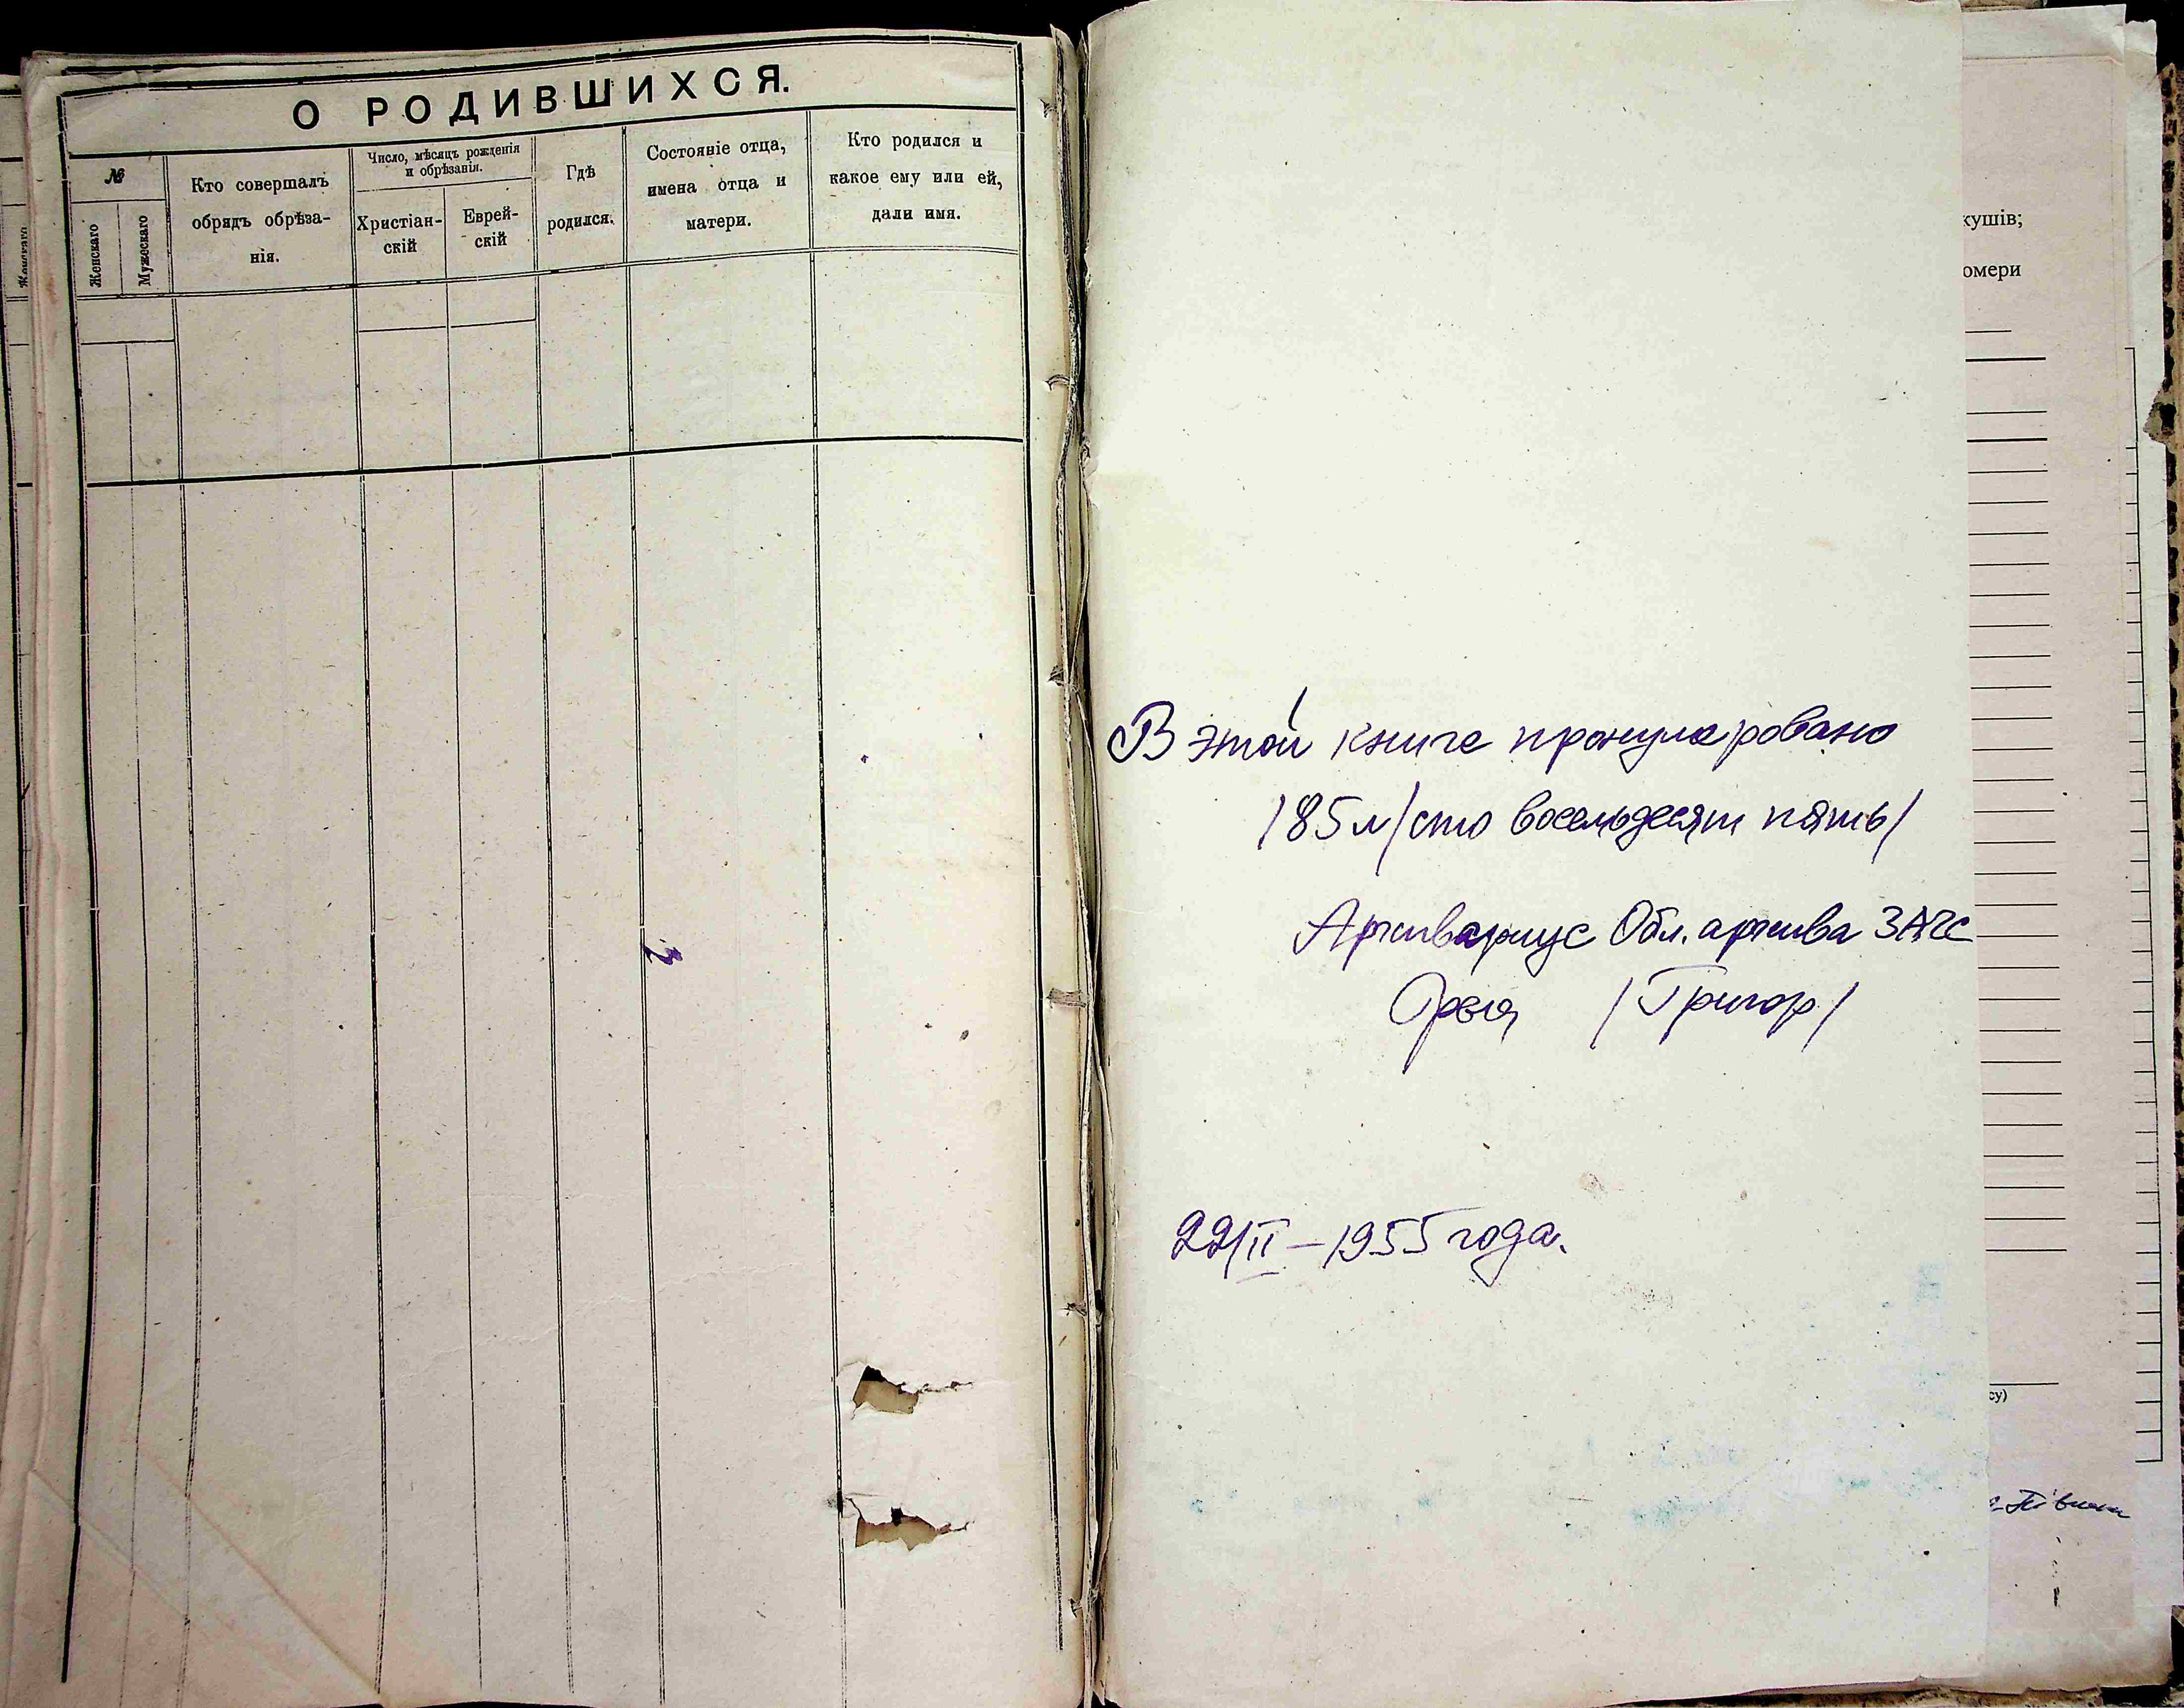 О РОДИВШИХСЯ.
№
Женскаго
Мужескаго
Кто совершалъ
обрядъ обрѣза-
нія.
Число, мѣсяцъ рожденія
и обрѣзанія.
Христіан-
скій
Еврей-
скій
Гдѣ
родился.
Состояніе отца,
имена отца и
матери.
Кто родился и
какое ему или ей,
дали имя.
В этой книге пронумеровано
185 л/сто восемьдесят пять/
Архивариус Обл. архива ЗАГС
/Григор/
22/II – 1955 года.
кушів;
омери
су)